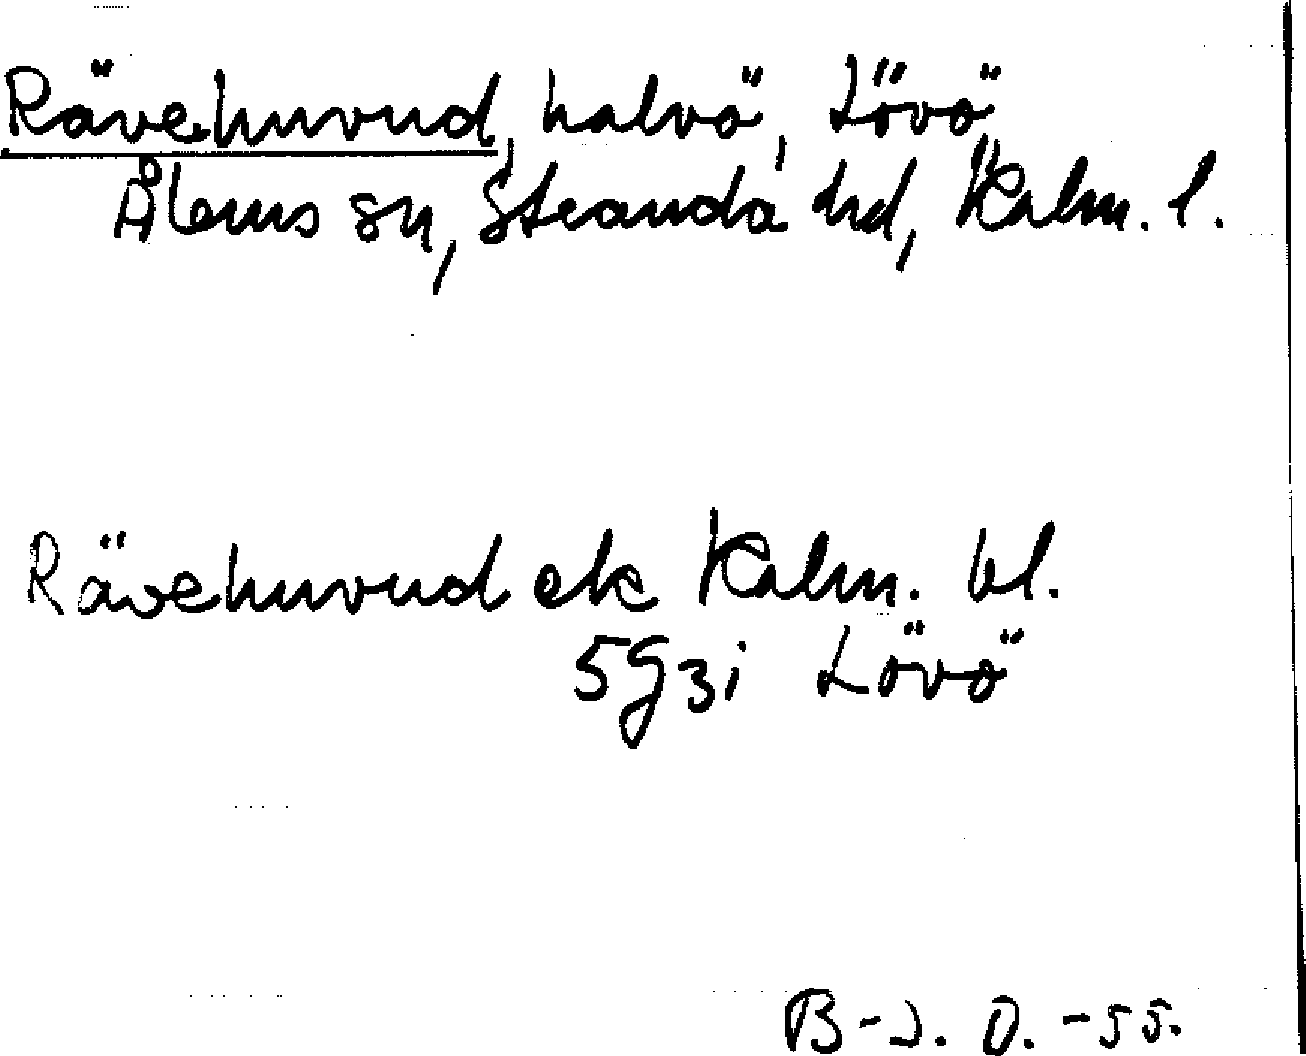 Rävehuvud, halvö, Lövö,
Ålems sn, Stranda hd, Kalm. l.
Rävehuvud ek Kalm. bl.
5G3i Lövö
B-J. O. -55.